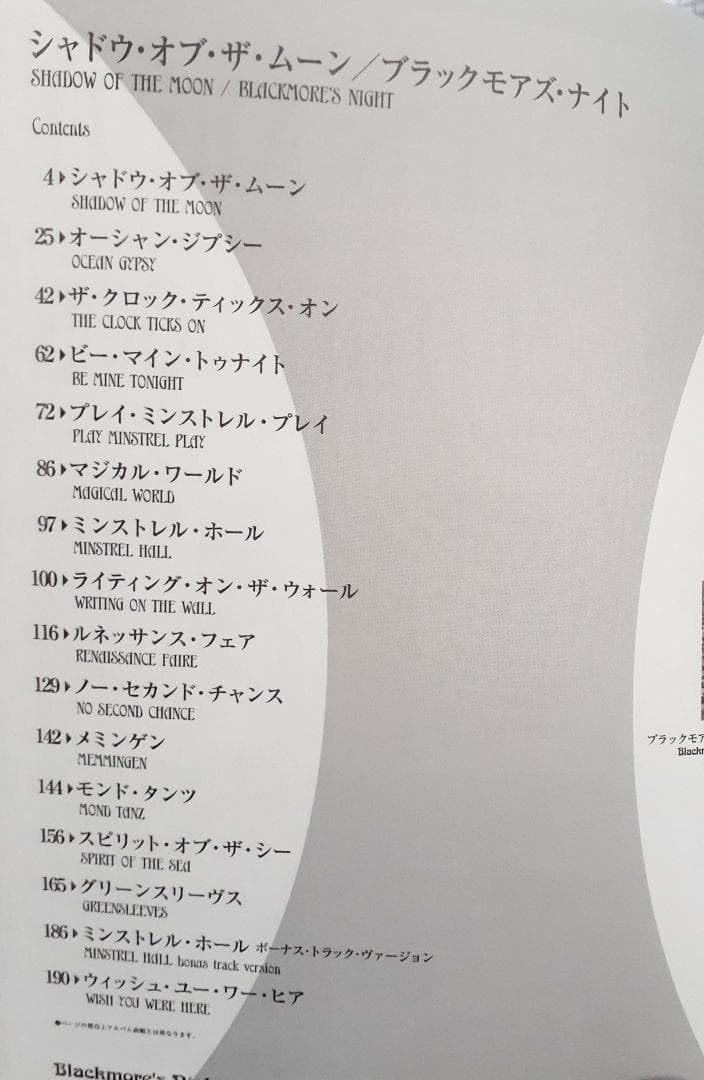 シャドウ・オブ・ザ・ムーン／ブラックモアズ・ナイト
SHADOW OF THE MOON / BLACKMORE'S NIGHT
Contents
4▶シャドウ・オブ・ザ・ムーン
SHADOW OF THE MOON
25▶オーシャン・ジプシー
OCEAN GYPSY
42▶ザ・クロック・ティックス・オン
THE CLOCK TICKS ON
62▶ビー・マイン・トゥナイト
BE MINE TONIGHT
72▶プレイ・ミンストレル・プレイ
PLAY MINSTREL PLAY
86▶マジカル・ワールド
MAGICAL WORLD
97▶ミンストレル・ホール
MINSTREL HALL
100▶ライティング・オン・ザ・ウォール
WRITING ON THE WALL
116▶ルネッサンス・フェア
RENAISSANCE FAIRE
129▶ノー・セカンド・チャンス
NO SECOND CHANCE
142▶メミンゲン
MEMMINGEN
144▶モンド・タンツ
MOND TANZ
156▶スピリット・オブ・ザ・シー
SPIRIT OF THE SEA
165▶グリーンスリーヴス
GREENSLEEVES
186▶ミンストレル・ホール ボーナス・トラック・ヴァージョン
MINSTREL HALL bonus track version
190▶ウィッシュ・ユー・ワー・ヒア
WISH YOU WERE HERE
●ページの都合上アルバム曲順とは異なります。
Blackmore's
ブラックモア
Blackm